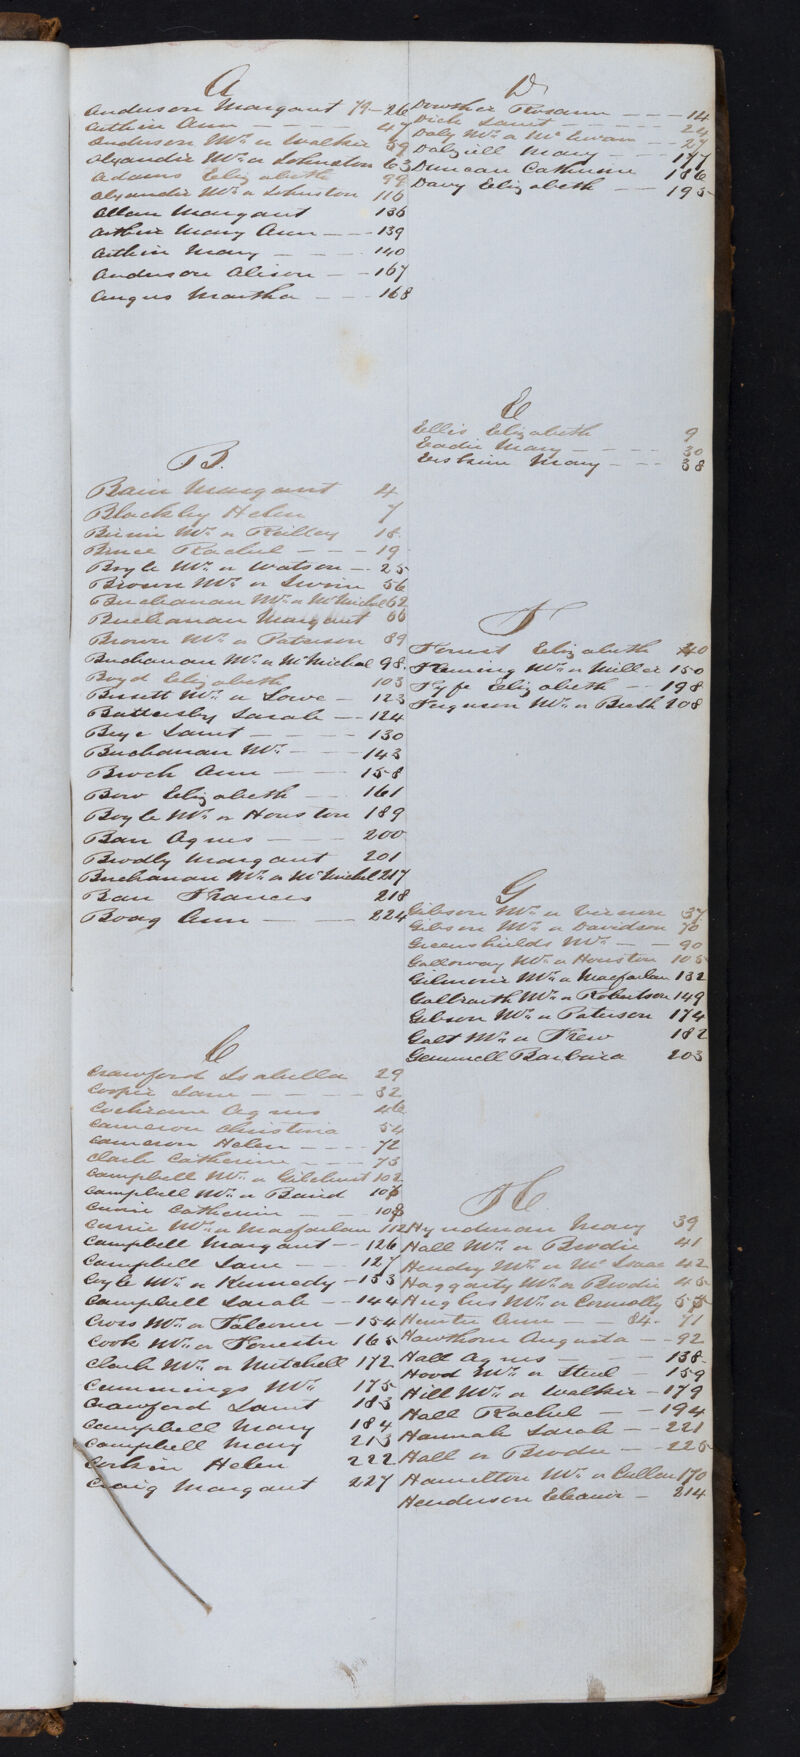 A
Anderson Margaret 79 – 26
Aitkin Ann – – – – 47
Anderson Mrs. or Walker 59
Alexander Mrs. or Johnston 63
Adams Elizabeth 99
Alexander Mrs. or Johnston 116
Allan Margaret 136
Arthur Mary Ann – – – 139
Aitkin Mary – – – 140
Anderson Alison – – 167
Angus Martha – – – 168
B.
Bain Margaret 4
Blackley Helen 7
Birnie Mrs. or Reilley 18
Bruce Rachel – – – 19
Boyle Mrs. or Watson – – 25
Brown Mrs. or Irvine 56
Buchanan Mrs. or McMichael 62
Buchanan Margaret 66
Brown Mrs. or Paterson 89
Buchanan Mrs. or McMichael 98
Boyd Elizabeth 103
Bissett Mrs. or Lowe – 123
Battersby Sarah – – 124
Beye Janet – – – – 130
Buchanan Mrs. – – – 143
Brock Ann – – – 158
Bow Elizabeth – – 161
Boyle Mrs. or Houston 189
Barr Agnes – – – 200
Brodly Margaret 201
Buchanan Mrs. or McMichel 217
Barr Frances 218
Boag Ann – – – 224
C
Crawford Isabella 29
Cooper Jane – – – – 32
Cochrane Agnes 46
Cameron Christina 54
Cameron Helen – – – – 72
Clark Catherine – – – 73
Campbell Mrs. or Gilchrist 102
Campbell Mrs. or Baird 106
Currie Catherine – – 108
Currie Mrs. or Macfarlan 112
Campbell Margaret – – 126
Campbell Jane – – – 127
Coyle Mrs. or Kennedy – 133
Campbell Sarah – – 144
Cross Mrs. or Falconer – 154
Cook Mrs. or Forrester 165
Clark Mrs. or Mitchell 172
Cummings Mrs. 175
Crawford Janet 183
Campbell Mary 184
Campbell Mary 213
Corkin Helen 222
Craig Margaret 227
D
Dowther Rosann – – – 14
Dick Janet – – – 24
Daly Mrs. or McEwan – – 27
Dalziell Mary – – – 177
Duncan Catherine 186
Davy Elizabeth – – 195
E
Ellis Elizabeth 9
Eadie Mary – – – – 30
Erskine Mary – – – 38
F
Forrest Elizabeth 40
Fleming Mrs. or Miller 150
Fyfe Elizabeth – – 198
Ferguson Mrs. or 208
G
Gibson Mrs. or Vernon 37
Gibson Mrs. or Davidson 70
Greenshields Mrs. – – 90
Galloway Mrs. or Houston 105
Gilmore Mrs. or Macfarlan 132
Galbraith Mrs. or Robertson 149
Gibson Mrs. or Paterson 174
Galt Mrs. or Frew 182
Gemmell Barbara 203
H
Hyndman Mary 39
Hall Mrs. or Brodie 41
Hendry Mrs. or McIsaac 42
Haggarty Mrs. or Brodie 45
Hughes Mrs. or Connolly 58
Hunter Ann – – – 84. – 71
Hawthorn Augusta – – 92
Hall Agnes – – – 138
Hood Mrs. or Steel – 159
Hill Mrs. or Walker – 179
Hall Rachel – – 194
Hannah Sarah – – 221
Hall or Brodie – – 225
Hamilton Mrs. or Cullen 170
Henderson Eleanor – 214